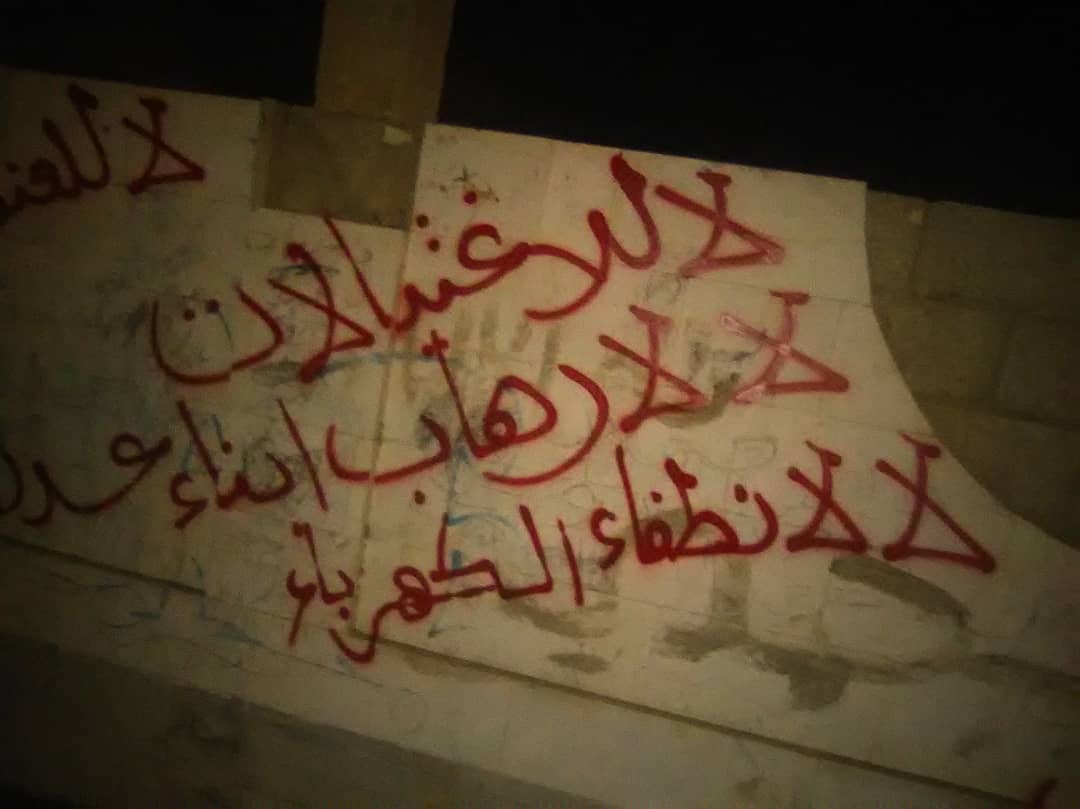 لا
لا للاغتيالات
لا لارهاب ابناء عدن
لا لانطفاء الكهرباء